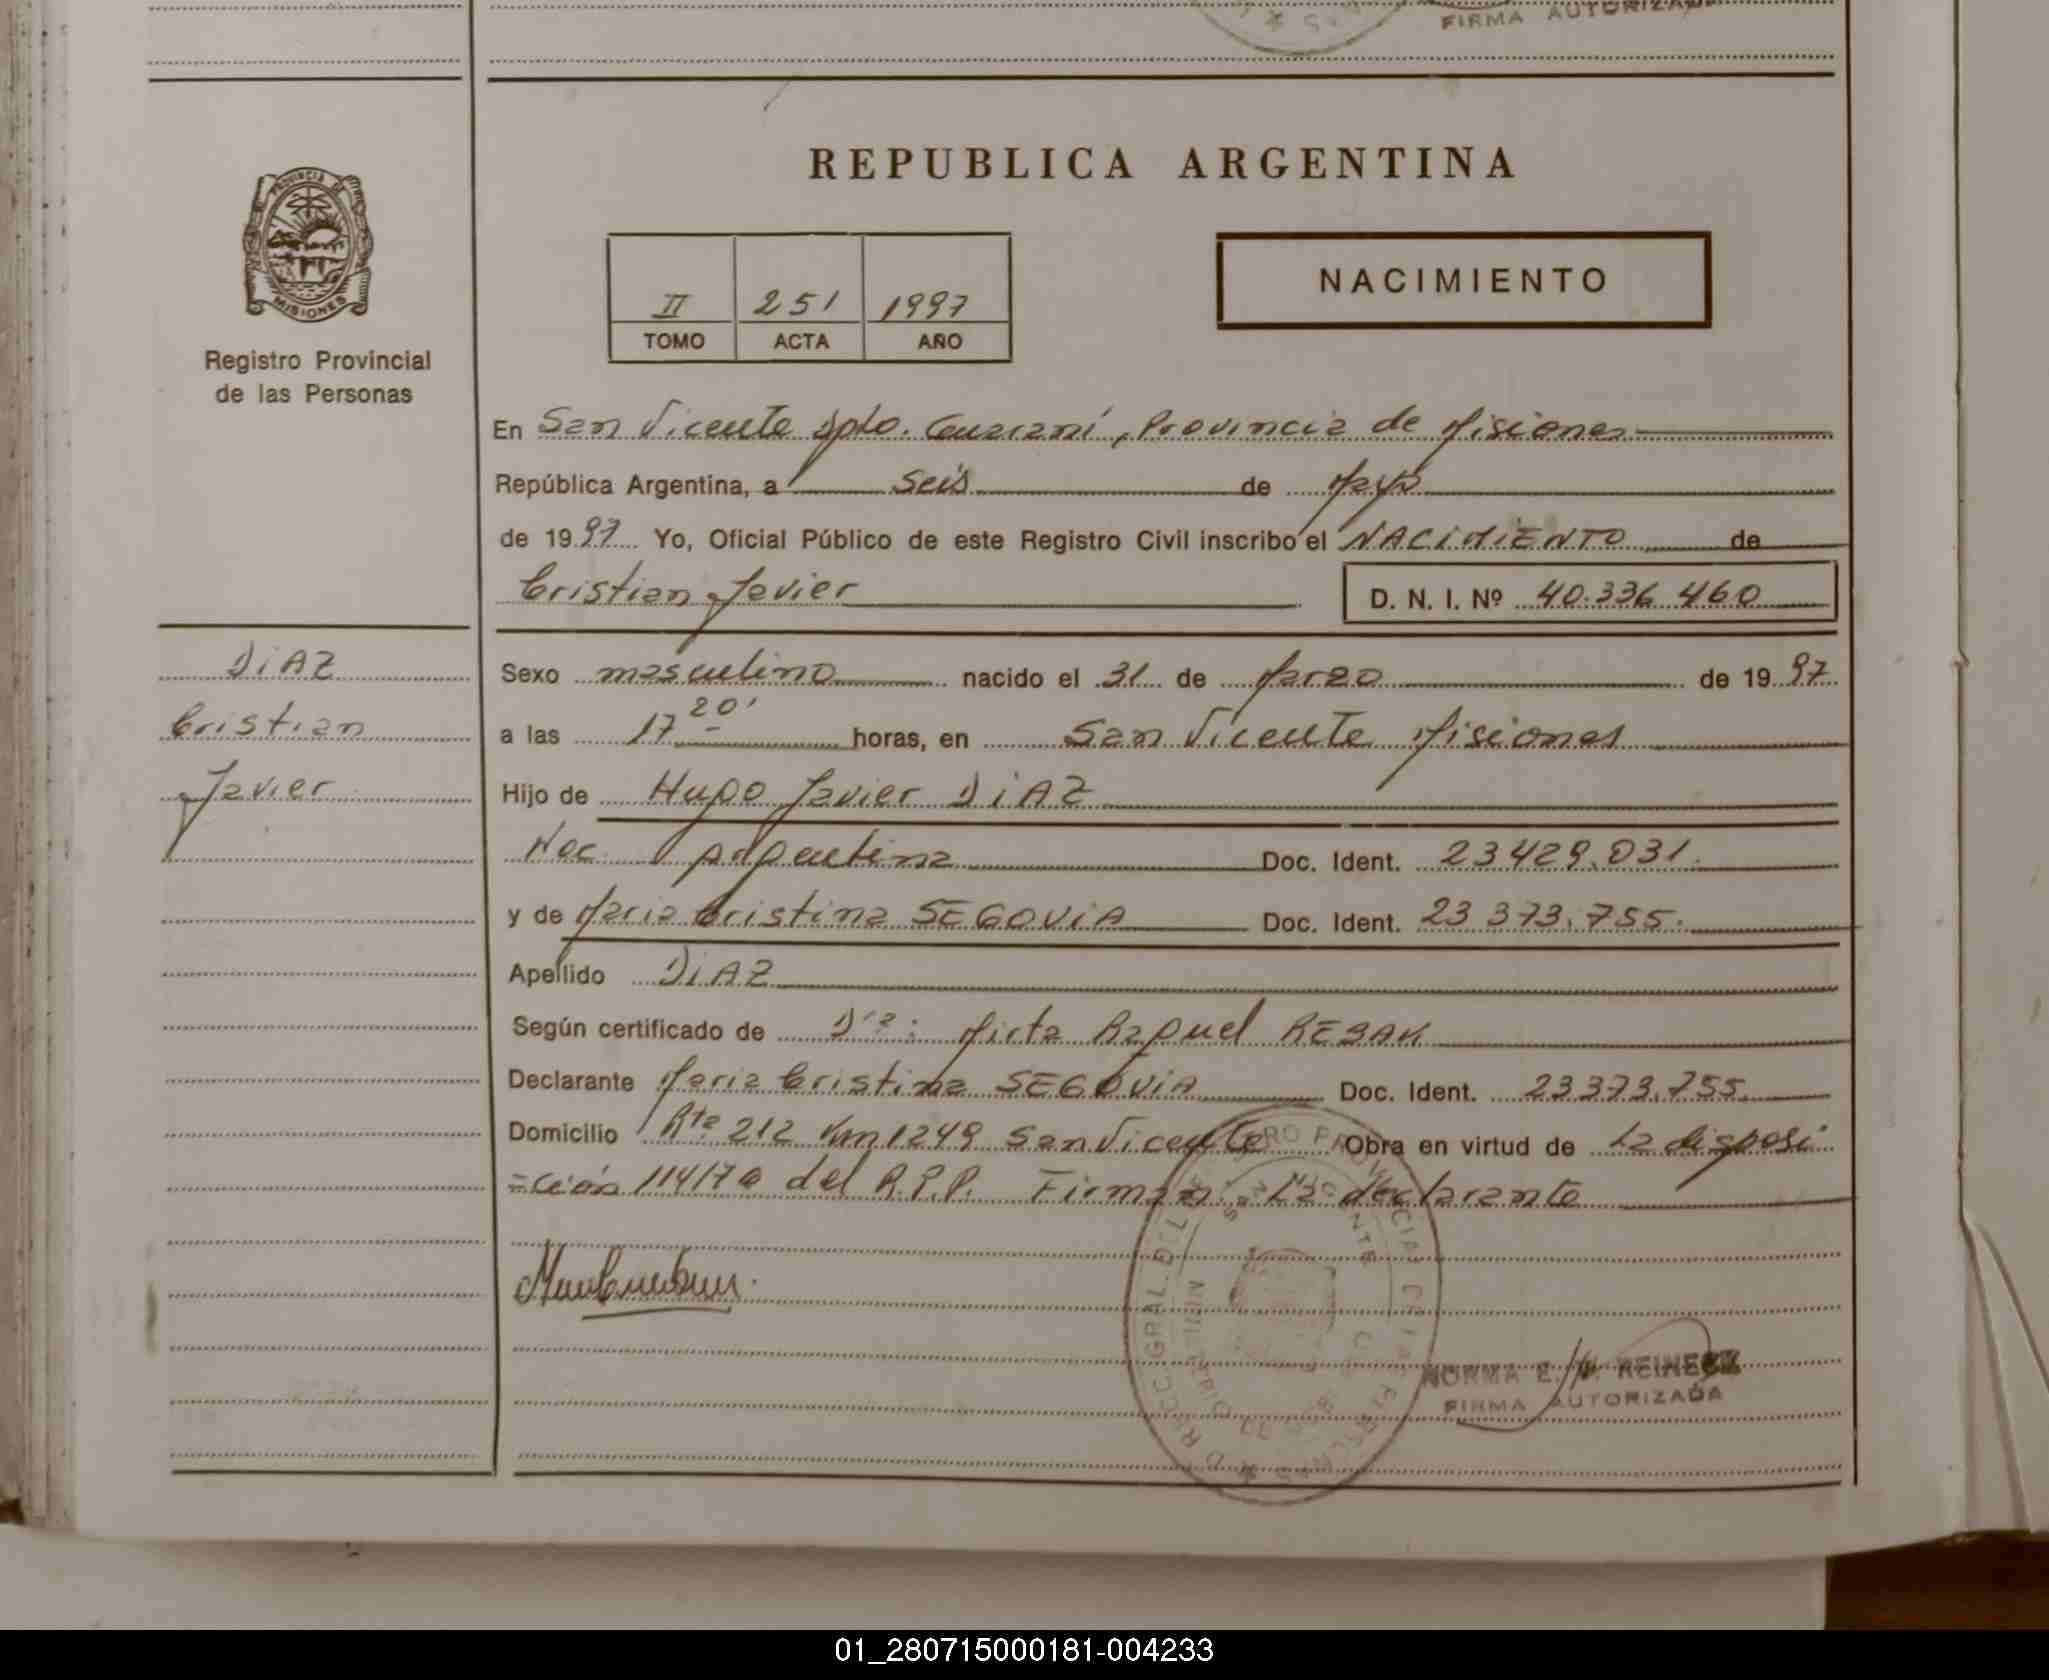 FIRMA AUTORIZADA
REPUBLICA ARGENTINA
PROVINCIA DE
MISIONES
Registro Provincial
de las Personas
NACIMIENTO
II 251 1997
TOMO ACTA AÑO
En San Vicente Dpto. Guaraní, Provincia de Misiones
República Argentina, a seis de Mayo
de 1997 Yo, Oficial Público de este Registro Civil inscribo el NACIMIENTO de
Cristian Javier D. N. I. Nº 40.336 460
DiAZ
Cristian
Javier
Sexo masculino nacido el 31 de Marzo de 1997
a las 17 20' horas, en San Vicente Misiones
Hijo de Hugo Javier DiAZ
Nac. Argentina Doc. Ident. 23429.031.
y de Maria Cristina SEGOViA Doc. Ident. 23 373.755.
Apellido DiAZ
Según certificado de Dra: Mirta Raquel
Declarante Maria Cristina SEGOViA Doc. Ident. 23373.755.
Domicilio Rta 212 Km 1249 San Vicente Obra en virtud de La disposi
=ción 114/76 del R.P.P. Firman: La declarante
NORMA E. REINECK
FIRMA AUTORIZADA
01_280715000181-004233